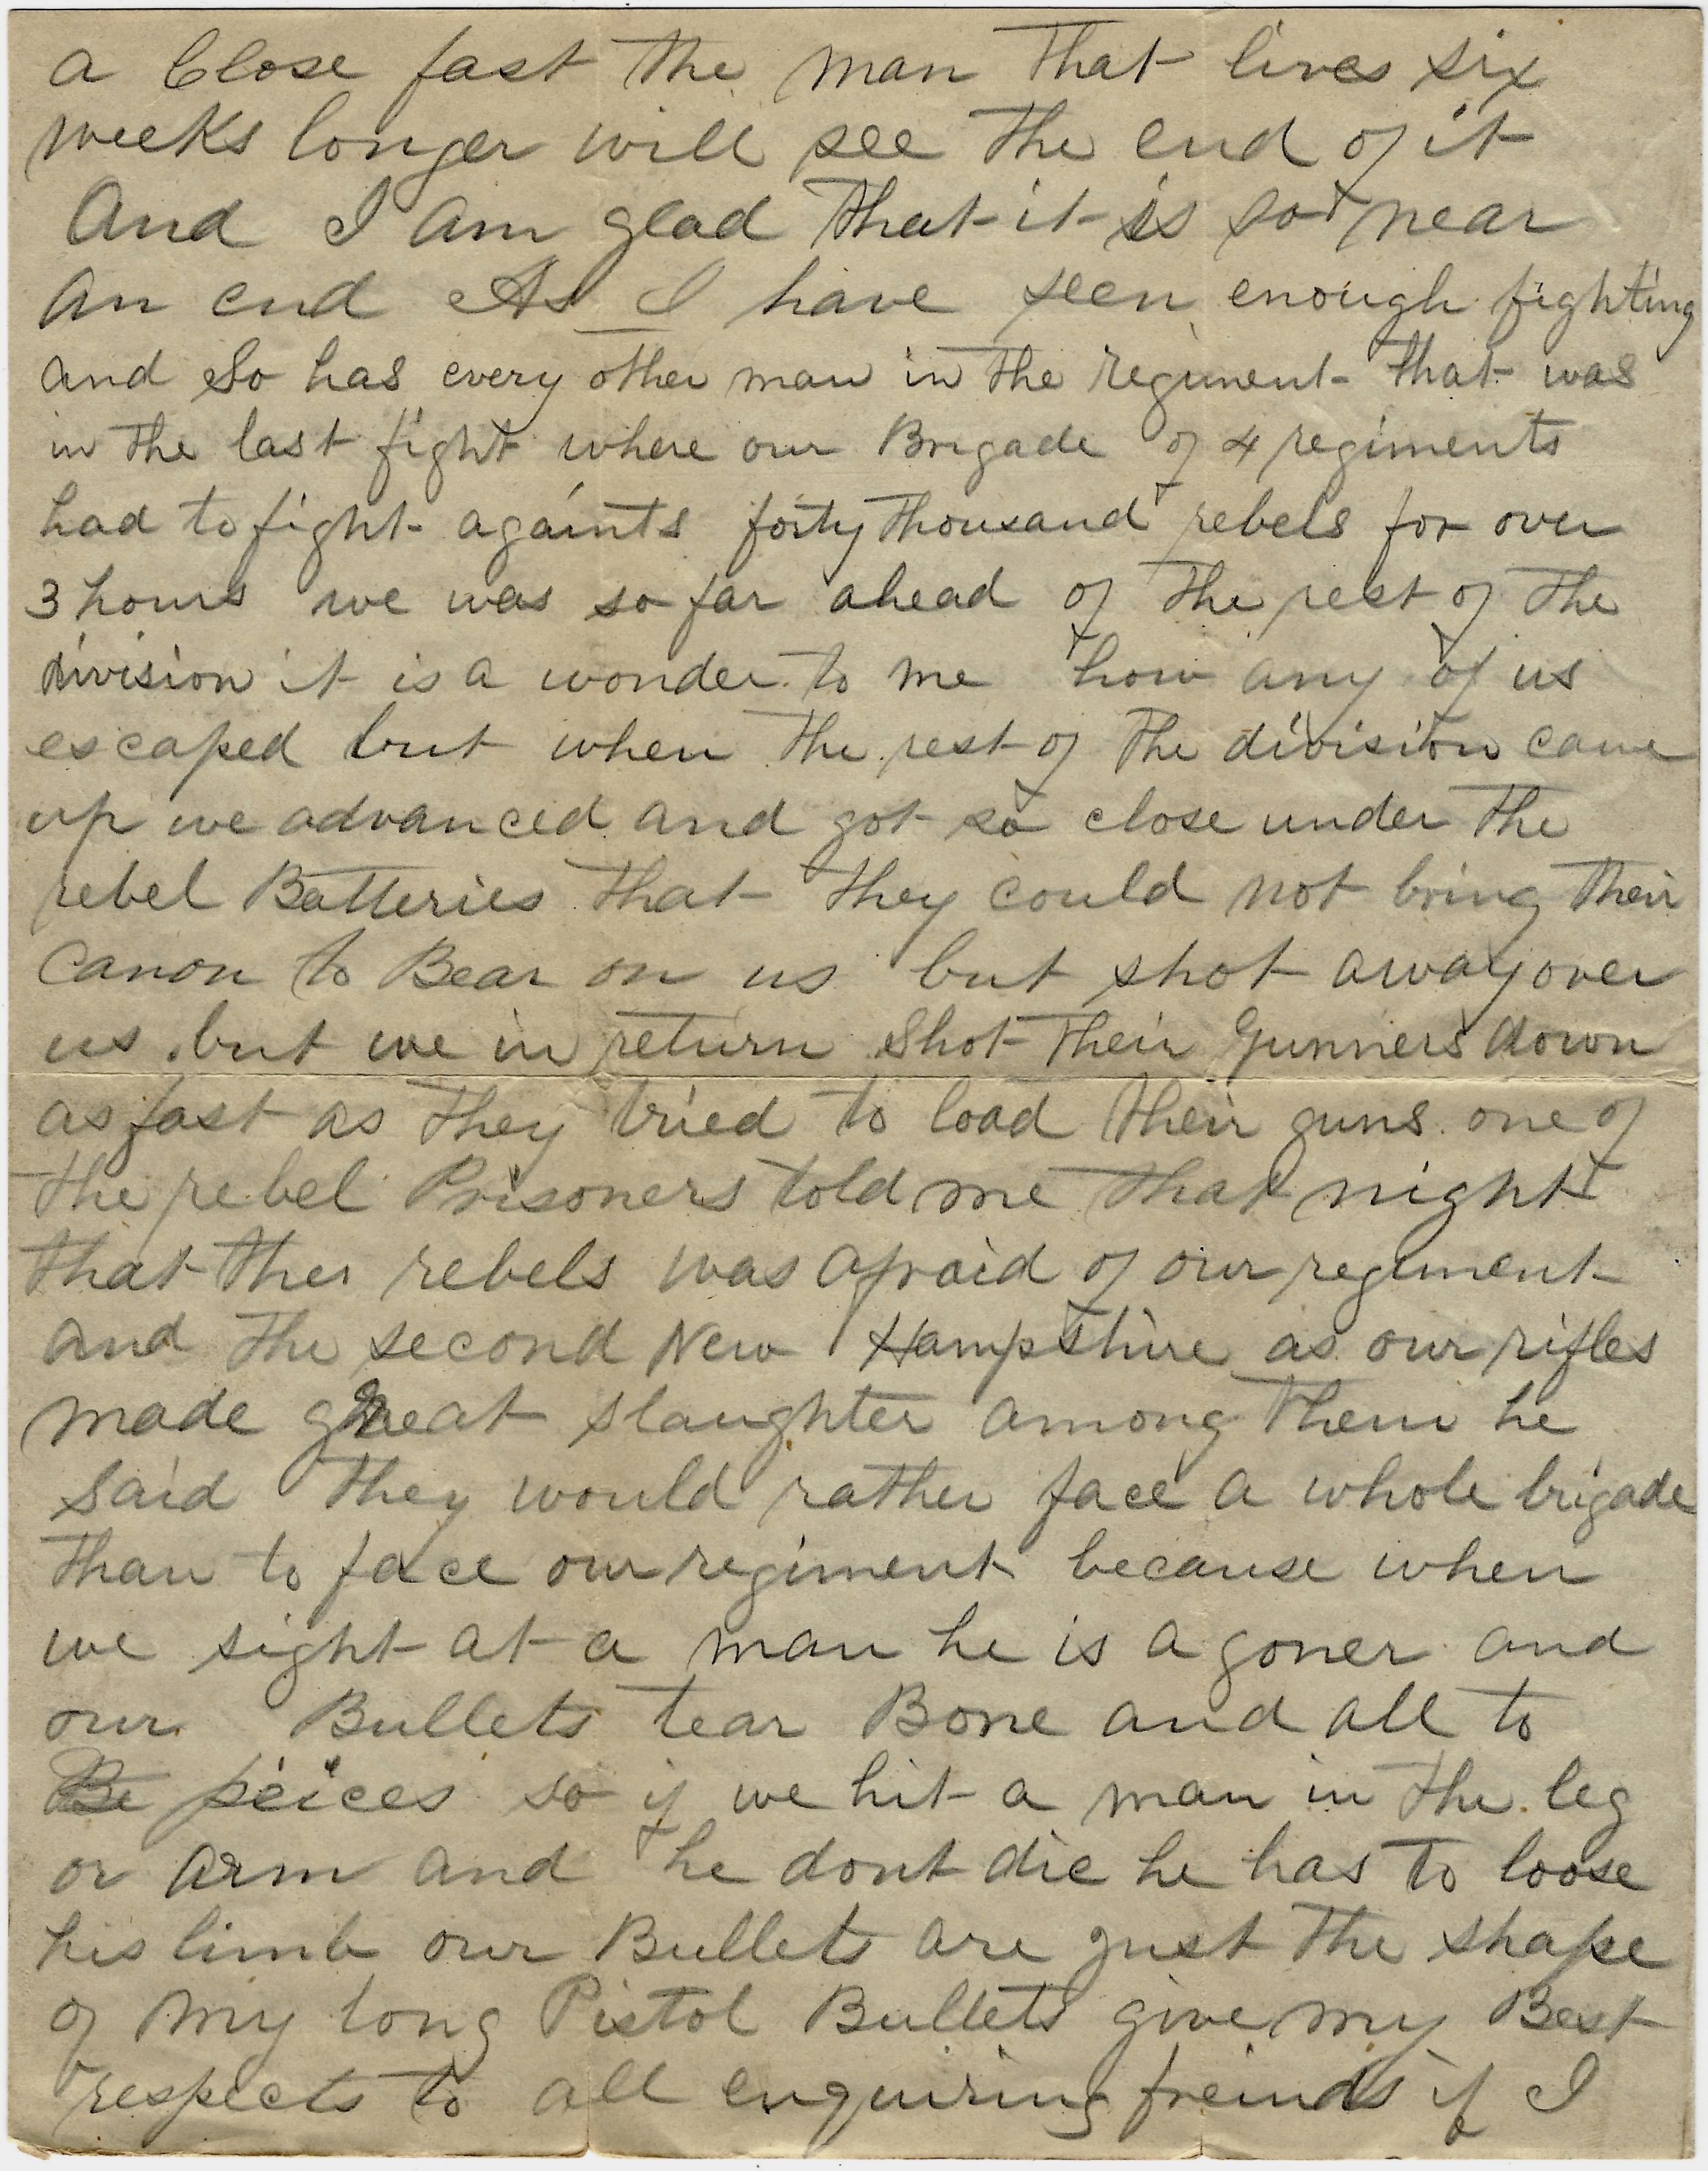 a Close fast the man that lives six
weeks longer will see the end of it
And I am glad that it is so near
an end As I have seen enough fighting
and So has every other man in the regiment that was
in the last fight where our Brigade of 4 regiments
had to fight againts forty thousand rebels for over
3 hours we was so far ahead of the rest of the
division it is a wonder to me how any of us
escaped but when the rest of the division came
up we advanced and got so close under the
rebel Batteries that they could not bring their
Canon to Bear on us but shot away over
us but we in return Shot their Gunners down
as fast as they tried to load their guns one of
the rebel Prisoners told me that night
that ther rebels was afraid of our regiment
and the second New Hampshire as our rifles
made great slaughter among them he
said they would rather face a whole brigade
than to face our regiment because when
we sight at a man he is a goner and
our Bullets tear Bone and all to
Be peices so if we hit a man in the leg
or arm and he dont die he has to loose
his limb our Bullets are just the shape
of my long Pistol Bullets give my Best
respects to all enquiring freinds if I